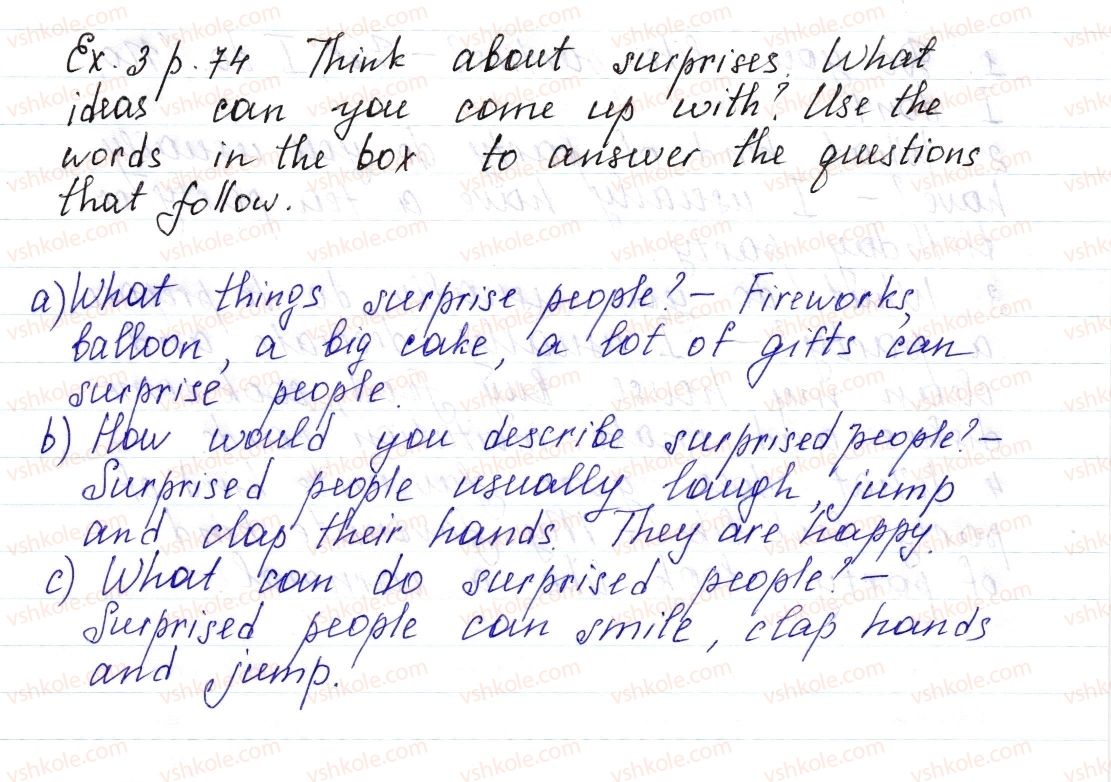 Ex. 3 p. 74 Think about surprises. What
ideas can you come up with? Use the
words in the box to answer the questions
that follow.
a) What things surprise people? – Fireworks,
balloon, a big cake, a lot of gifts can
surprise people.
b) How would you describe surprised people? –
Surprised people usually laugh, jump
and clap their hands. They are happy.
c) What can do surprised people? –
Surprised people can smile, clap hands
and jump.
vshkole.com